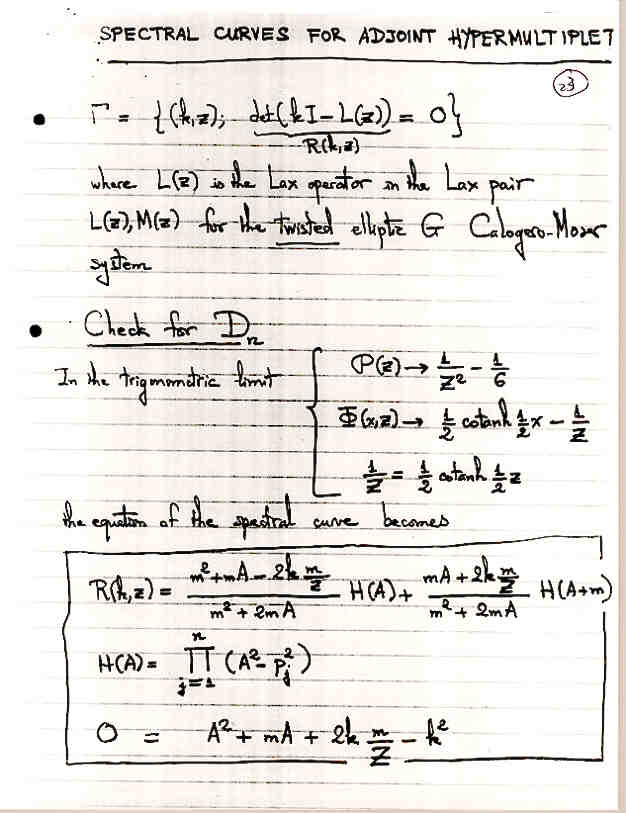 SPECTRAL CURVES FOR ADJOINT HYPERMULTIPLET
23
• Γ = {(k,z); det(kI − L(z)) = 0}
R(k,z)
where L(z) is the Lax operator in the Lax pair
L(z), M(z) for the twisted elliptic G Calogero-Moser
system
• Check for Dn
In the trigonometric limit
℘(z) → 1/Z² − 1/6
Φ(x,z) → 1/2 cotanh 1/2 x − 1/Z
1/Z = 1/2 cotanh 1/2 z
the equation of the spectral curve becomes
R(k,z) = (m² + mA − 2k m/Z)/(m² + 2mA) H(A) + (mA + 2k m/Z)/(m² + 2mA) H(A+m)
H(A) = ∏_{j=1}^{n} (A² − p_j²)
0 = A² + mA + 2k m/Z − k²